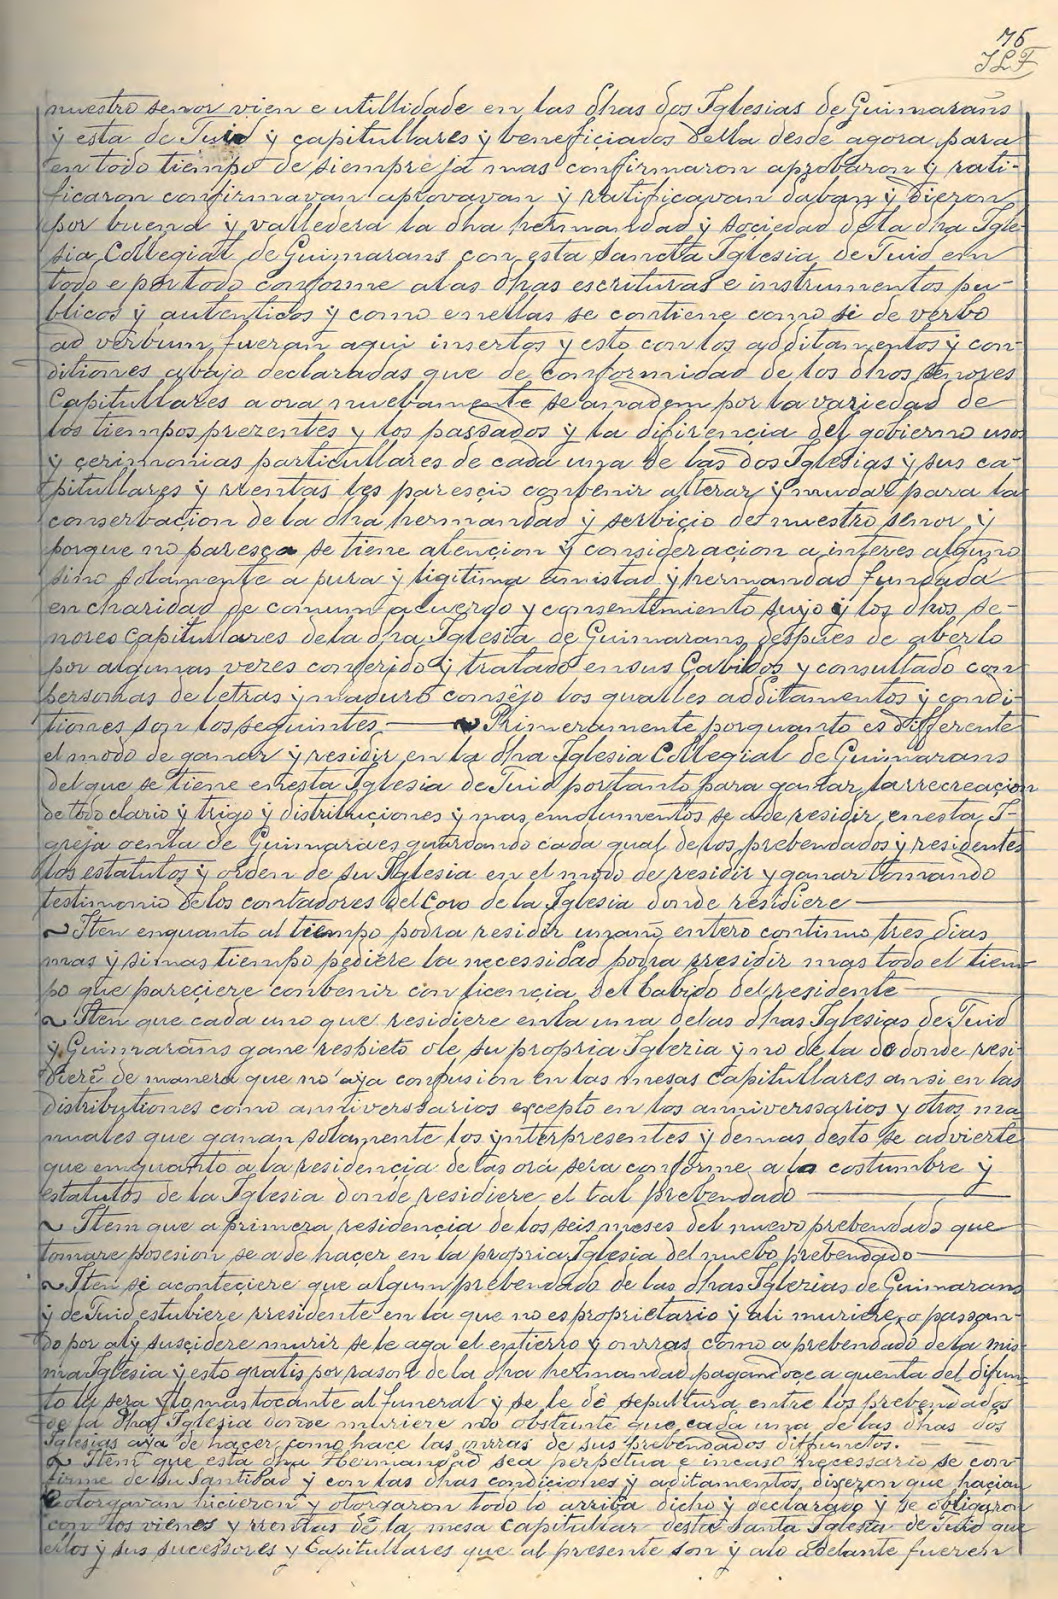 76
JLF
nuestro senor vien e utillidade en las dhas dos Iglesias de Guimarans
y esta de Tuid y capitullares y beneficiados della desde agora para
en todo tiempo de siempre ja mas confirmaron aprobaron y rati-
ficaron confirmavan aprovavan y ratificavan daban y dieron
por buena y valledera la dha hermandad y sociedad de la dha Igle-
sia Collegial de Guimarans con esta Sancta Iglesia de Tuid em
todo e por todo conforme a las dhas escrituras e instrumentos pu-
blicos y autenticos y como enellas se contiene como si de verbo
ad verbum fueran aqui insertos y esto con los additamentos y con-
ditiones abajo declaradas que de conformidad de los dhos senores
Capitullares aora nuebamente se anadem por la variedad de
los tiempos prezentes y los passados y la difirencia del gobierno usos
y cerimonias particullares de cada una de las dos Iglesias y sus ca-
pitullares y rrentas les parescio convenir alterar y mudar para la
conservacion de la dha hermandad y servicio de nuestro senor y
porque no paresca se tiene atencion y consideracion a interes alguno
sino solamente a pura y ligitima amistad y hermandad fundada
en charidad de comun acuerdo y consentimiento sujo y los dhos se-
nores Capitullares de la dha Iglesia de Guimarans despues de aberlo
por algunas veres conferido y tratado en sus Cabildos y consultado con
personas de letras y maduro consejo los qualles additamentos y condi-
tiones son los seguintes — Primeramente por quanto es differente
el modo de ganar y residir en la dha Iglesia Collegial de Guimarans
del que se tiene en esta Iglesia de Tuid portanto para ganar la rrecreacion
de todo clario y trigo y distribuciones y mas emolumentos se a de residir en esta I-
greja o en la de Guimaraes guardando cada qual de los prebendados y residentes
los estatutos y orden de su Iglesia en el modo de residir y ganar tomando
testimonio de los contadores del Coro de la Iglesia donde residiere —
~ Iten enquanto al tiempo podra residir un ano entero continuo tres dias
mas y si mas tiempo pediere la necessidad podra rresidir mas todo el tiem-
po que pareciere conbenir con licencia del Cabido del residente —
~ Iten que cada uno que residiere en la una de las dhas Iglesias de Tuid
y Guimarans gane respieto de su propria Iglezia y no de la de donde resi-
diere de manera que no aya confusion en las mesas Capitullares ansi en las
distributiones como anniverssarios excepto en los anniverssarios y otros ma
nuales que ganan solamente los ynterpresentes y demas desto se advierte
que enquanto a la residencia de las oras sera conforme a la costumbre y
estatutos de la Iglesia donde residiere el tal prebendado —
~ Item que a primera residencia de los seis meses del nuevo prebendado que
tomare posesion se a de haçer en la propria Iglesia del nuebo prebendado —
~ Iten si aconteciere que algum prebendado de las dhas Iglezias de Guimarans
y de Tuid estubiere rresidente en la que no es proprietario y ali muriere o passan-
do por aly suscidere murir se le aga el entierro y onrras como a prebendado de la mis-
ma Iglesia y esto gratis por rason de la dha hermandad pagandoce a quenta del difun-
to la sera y lo mas tocante al funeral y se le de sepultura entre los prebendados
de la dha Iglesia donde muriere no obstante que cada una de las dhas dos
Iglesias aya de haçer como hace las onrras de sus prebendados diffunctos.
~ Item que esta dha Hermandad sea perpetua e incaso necessario se con-
firme de su Santidad y con las dhas condiciones y aditamentos dixeron que haçian
e otorgavan hicieron y otorgaron todo lo arriba dicho y declarado y se obligaron
con los vienes y rrentas de la mesa Capitullar desta Santa Iglesia de Tuid que
ellos y sus successores y Capitullares que al presente son y alo adelante fueren